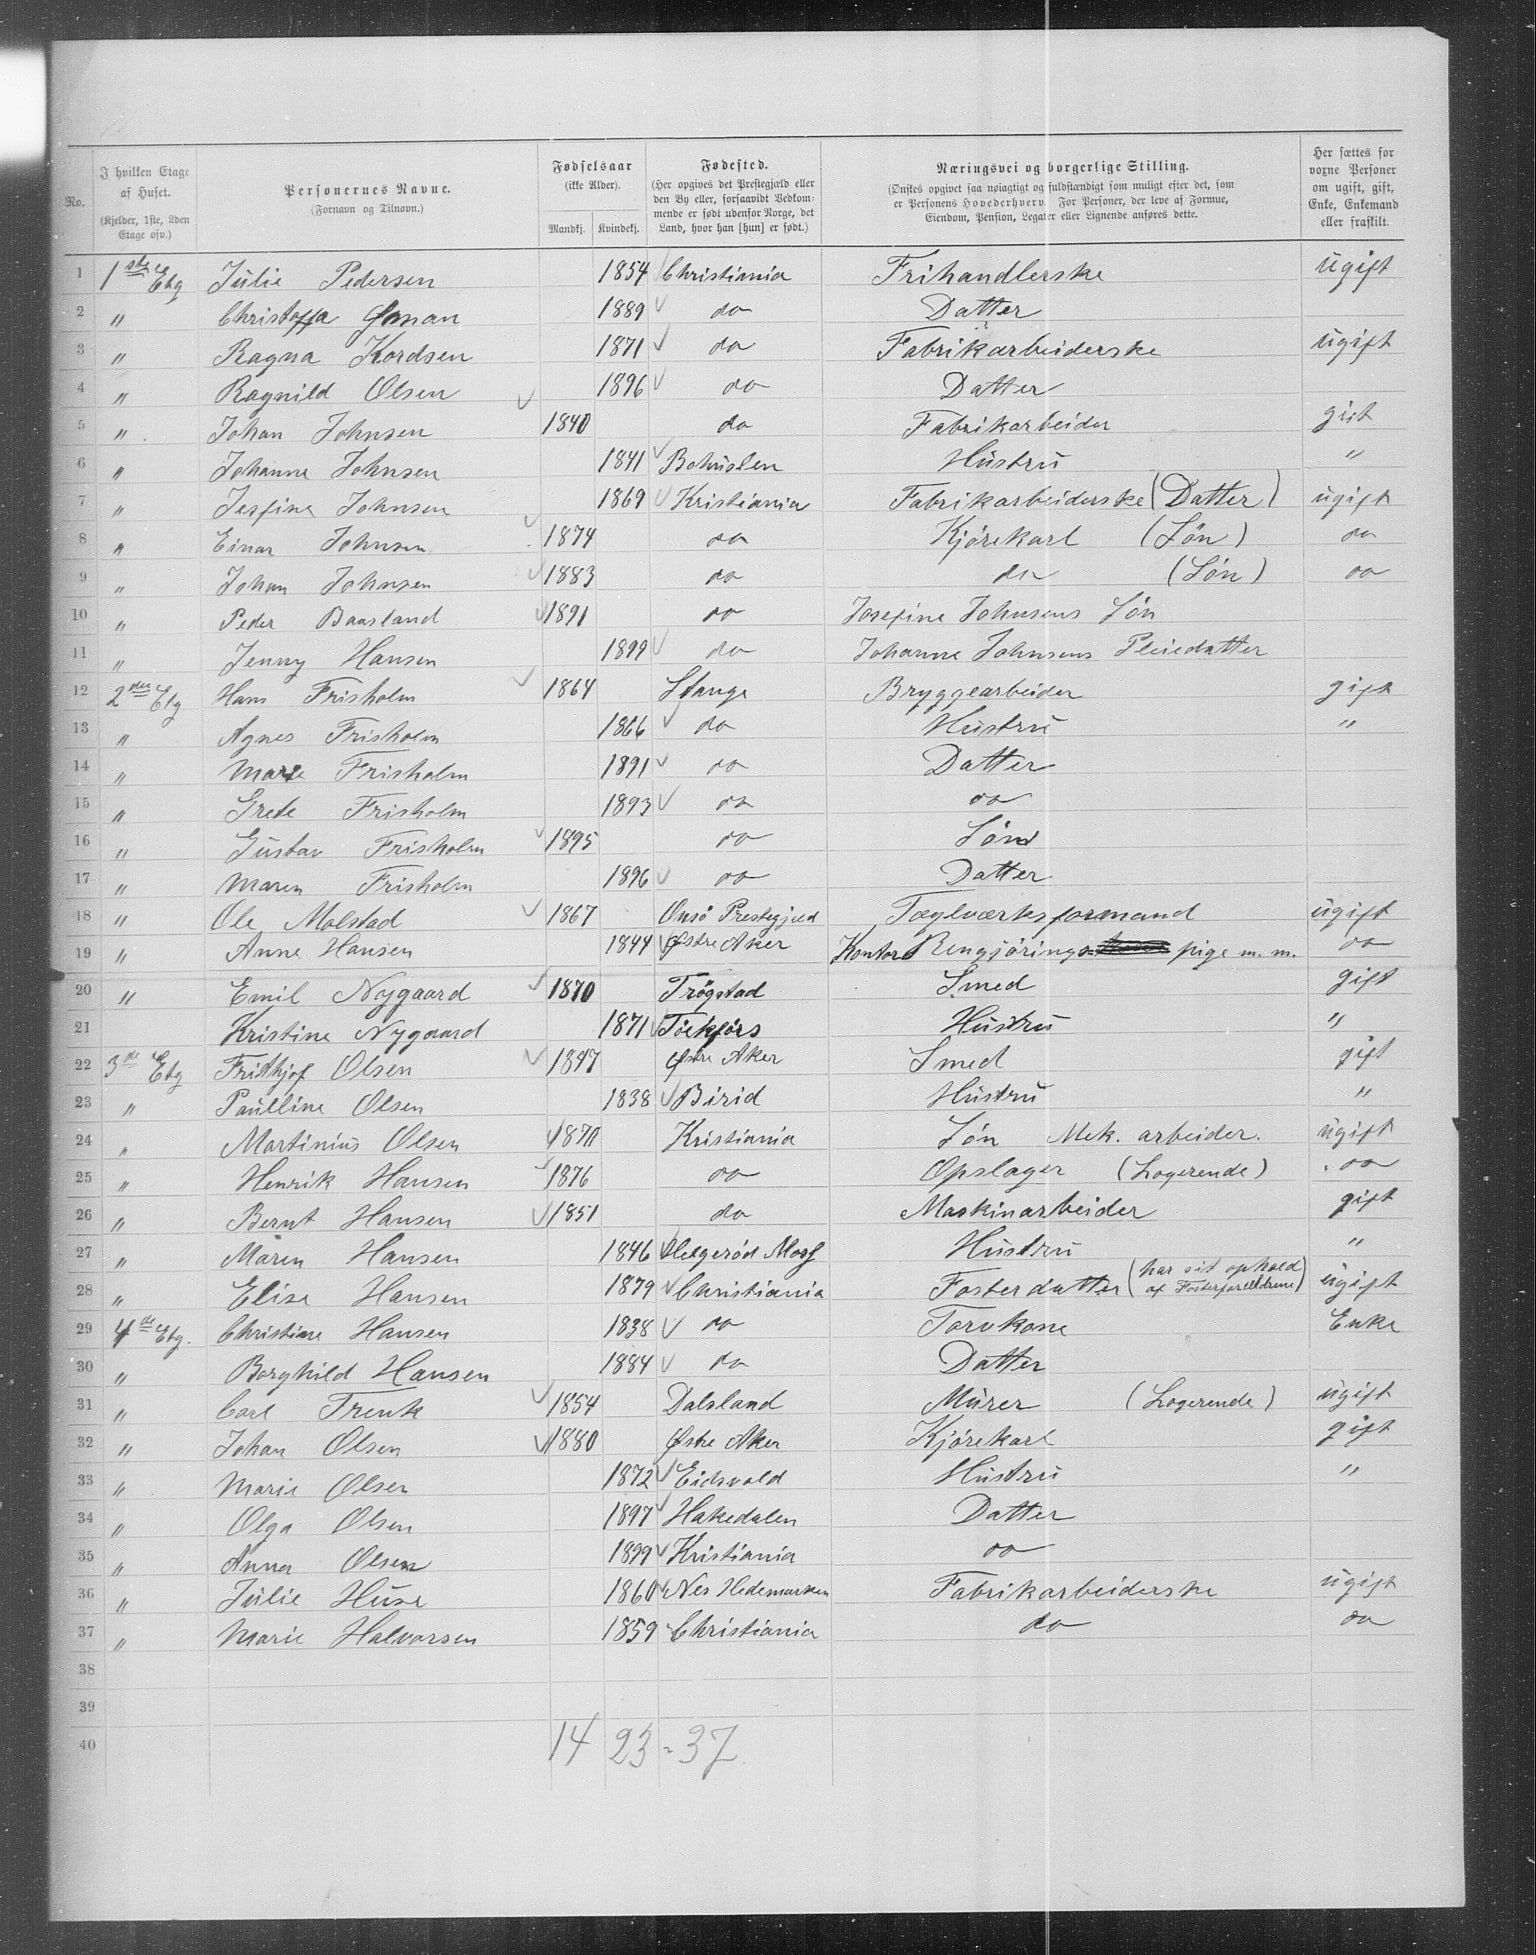 No.
I hvilken Etage af Huset. (Kjelder, 1ste, 2den Etage osv.)
Personernes Navne. (Fornavn og Tilnavn.)
Fødselsaar (ikke Alder). Mandkj. Kvindekj.
Fødested. (Her opgives det Prestegjæld eller den By eller, forsaavidt Vedkommende er født udenfor Norge, det Land, hvor han [hun] er født.)
Næringsvei og borgerlige Stilling. (Ønskes opgivet saa nøiagtigt og fuldstændigt som muligt efter det, som er Personens Hovederhverv. For Personer, der leve af Formue, Eiendom, Pension, Legater eller Lignende anføres dette.)
Her sættes for voxne Personer om ugift, gift, Enke, Enkemand eller fraskilt.
1 1ste Etg Julie Pedersen 1854 Christiania Frihandlerske ugift
2 " 1889 do Datter
3 " Ragna Kordsen 1871 do Fabrikarbeiderske ugift
4 " Ragnild Olsen 1896 do Datter
5 " Johan Johnsen 1840 do Fabrikarbeider gift
6 " Johanne Johnsen 1841 Bohuslen Hustru "
7 " Josfine Johnsen 1869 Kristiania Fabrikarbeiderske (Datter) ugift
8 " Einar Johnsen 1874 do Kjørekarl (Søn) do
9 " Johan Johnsen 1883 do do (Søn) do
10 " Peder Baasland 1891 do Josefine Johnsens Søn
11 " Jenny Hansen 1899 do Johanne Johnsens Pleiedatter
12 2den Etg Hans Frisholm 1864 Stange Bryggearbeider gift
13 " Agnes Frisholm 1866 do Hustru "
14 " Marie Frisholm 1891 do Datter
15 " Grete Frisholm 1893 do do
16 " Gustav Frisholm 1895 do Søn
17 " Maren Frisholm 1896 do Datter
18 " Ole Molstad 1867 Onsö Prestegjeld Tæglværksformand ugift
19 " Anne Hansen 1844 Østre Aker Kontor Rengjørings pige m. m. do
20 " Emil Nygaard 1870 Trögstad Smed gift
21 Kristine Nygaard 1871 Töckfors Hustru "
22 3de Etg Frithjof Olsen 1847 Østre Aker Smed gift
23 " Paulline Olsen 1838 Birid Hustru "
24 " Martinius Olsen 1871 Kristiania Søn Mek. arbeider. ugift
25 " Henrik Hansen 1876 do Opslager (Logerende) do
26 " Bernt Hansen 1851 do Maskinarbeider gift
27 " Maren Hansen 1846 Hustru "
28 " Elise Hansen 1879 Christiania Fosterdatter (har sit ophold af Fosterforeldrene) ugift
29 4de Etg. Christine Hansen 1838 do Torvkone Enke
30 " Borghild Hansen 1884 do Datter
31 " Carl Trenk 1854 Dalsland Murer (Logerende) ugift
32 " Johan Olsen 1880 Østre Aker Kjørekarl gift
33 " Marie Olsen 1872 Eidsvold Hustru "
34 " Olga Olsen 1897 Hakedalen Datter
35 " Anna Olsen 1899 Kristiania do
36 " Julie Huse 1860 Nes Hedemarken Fabrikarbeiderske ugift
37 " Marie Halvorsen 1859 Christiania do do
38
39
40
14 23 = 37